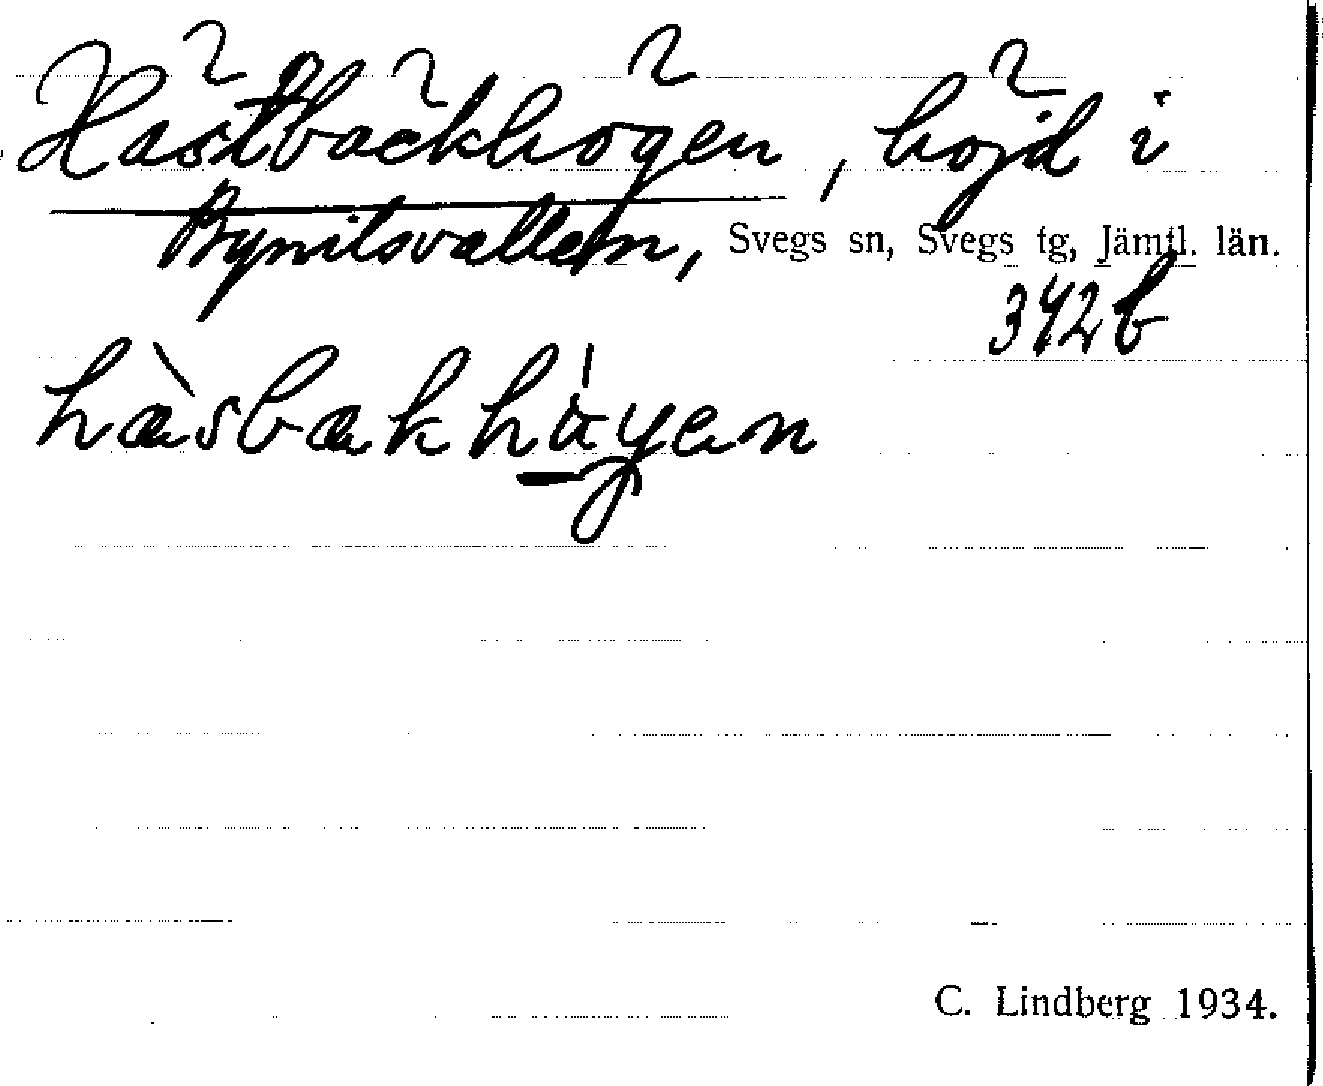 Hästbäckhögen, höjd i
Bynitsvallen, Svegs sn, Svegs tg, Jämtl. län.
342b
C. Lindberg 1934.